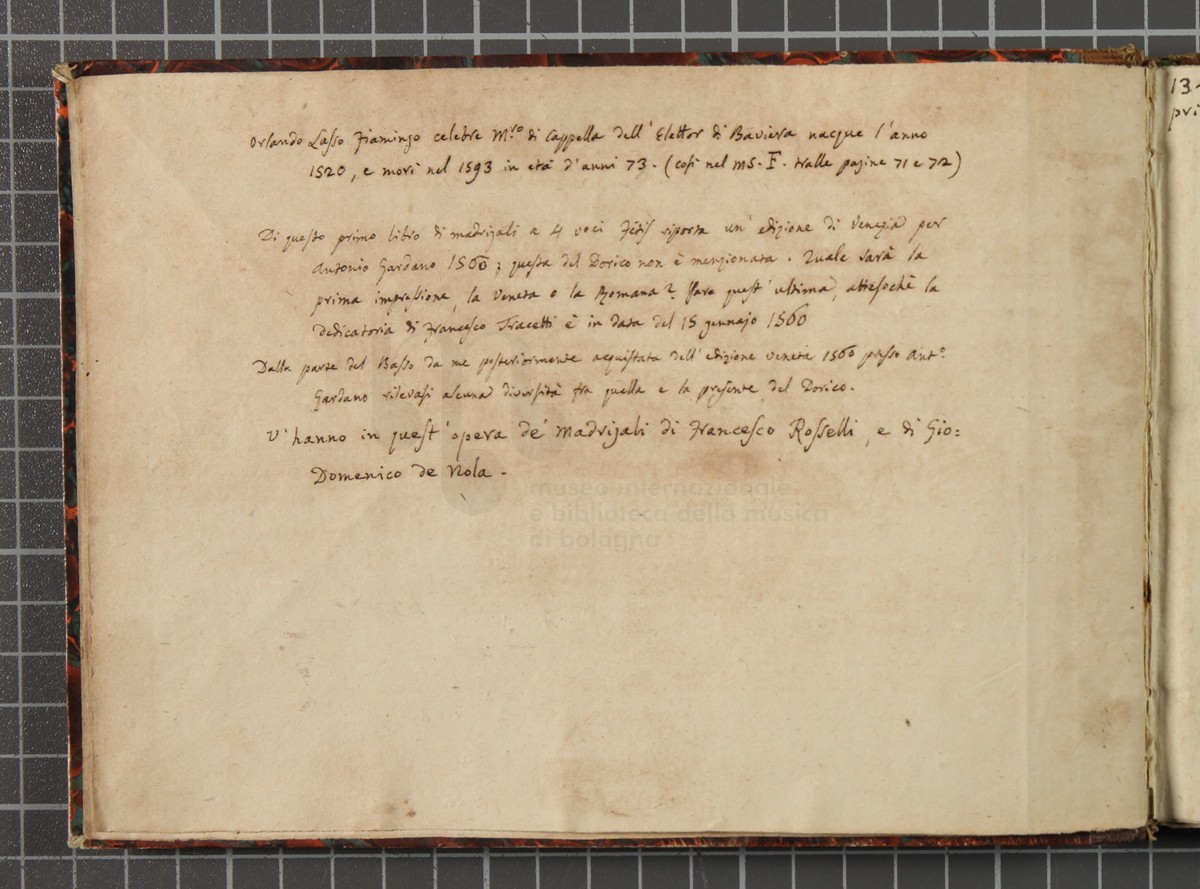 Orlando Lasso Fiamingo celebre M.ro di Cappella dell' Elettor di Baviera nacque l'anno
1520, e morì nel 1593 in età d'anni 73. (così nel MS. F. tralle pagine 71 e 72)
Di questo primo libro di madrigali a 4 voci Fétis riporta un' edizione di Venezia per
Antonio Gardano 1560; questa del Dorico non è menzionata. Quale sarà la
prima impressione, la Veneta o la Romana? Pare quest' ultima, attesochè la
dedicatoria di Francesco è in data del 15 gennajo 1560
Dalla parte del Basso da me posteriormente acquistata dell' edizione veneta 1560 presso Ant.o
Gardano rilevasi alcuna diversità tra quella e la presente del Dorico.
V' hanno in quest' opera de' Madrigali di Francesco Rosselli, e di Gio:
Domenico de Nola.
museo internazionale
e biblioteca della musica
di bologna
13
pri